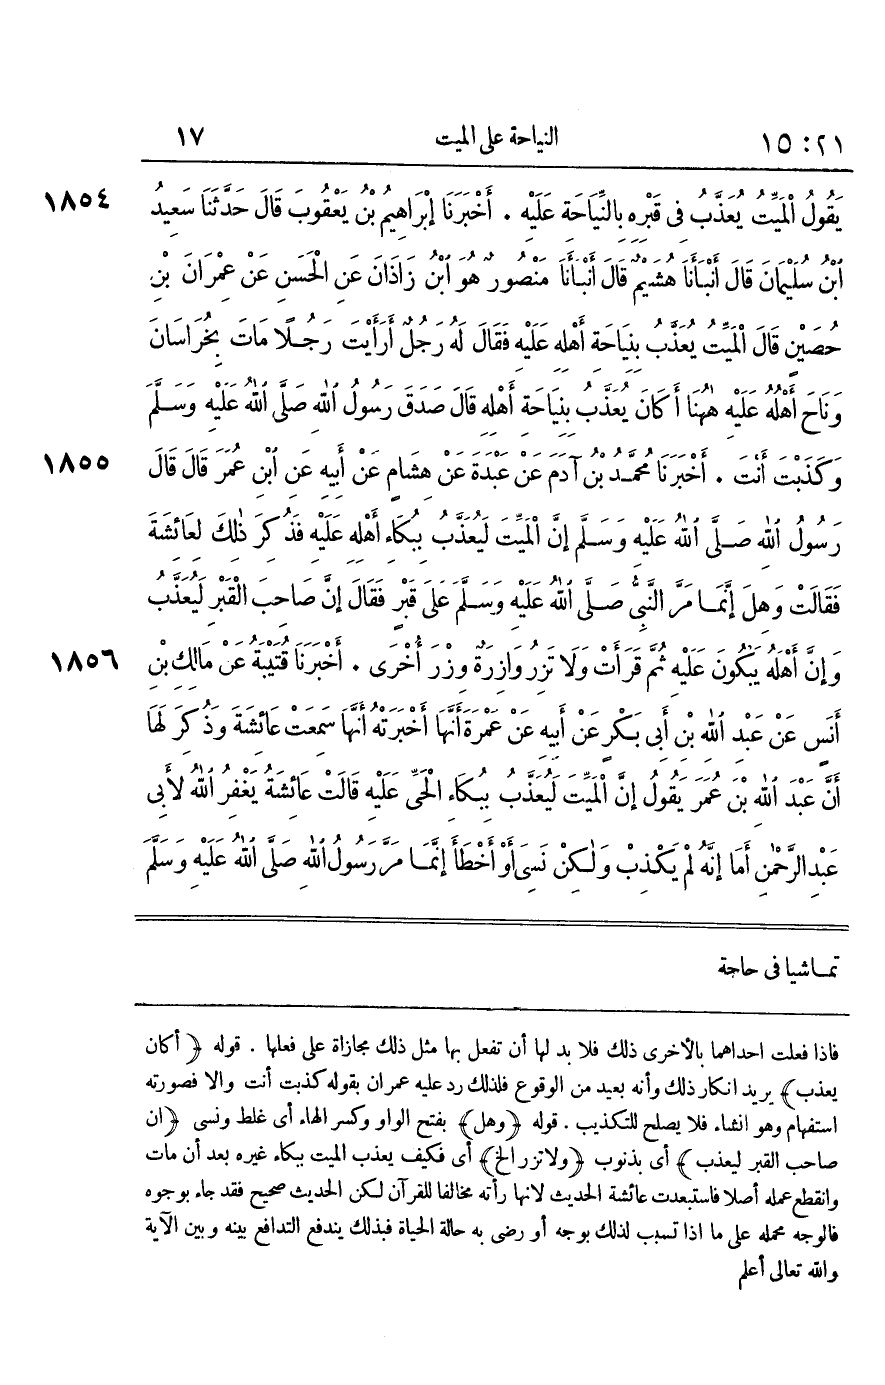 ١٥:٢١ النياحة على الميت ١٧
يَقُولُ الْمَيِّتُ يُعَذَّبُ فِى قَبْرِهِ بِالنِّيَاحَةِ عَلَيْهِ . أَخْبَرَنَا إِبْرَاهِيمُ بْنُ يَعْقُوبَ قَالَ حَدَّثَنَا سَعِيدُ ١٨٥٤
ابْنُ سُلَيْمَانَ قَالَ أَنْبَأَنَا هُشَيْمٌ قَالَ أَنْبَأَنَا مَنْصُورٌ هُوَ ابْنُ زَاذَانَ عَنِ الْحَسَنِ عَنْ عِمْرَانَ بْنِ
حُصَيْنٍ قَالَ الْمَيِّتُ يُعَذَّبُ بِنِيَاحَةِ أَهْلِهِ عَلَيْهِ فَقَالَ لَهُ رَجُلٌ أَرَأَيْتَ رَجُلًا مَاتَ بِخُرَاسَانَ
وَنَاحَ أَهْلُهُ عَلَيْهِ هٰهُنَا أَكَانَ يُعَذَّبُ بِنِيَاحَةِ أَهْلِهِ قَالَ صَدَقَ رَسُولُ اللهِ صَلَّى اللهُ عَلَيْهِ وَسَلَّمَ
وَكَذَبْتَ أَنْتَ . أَخْبَرَنَا مُحَمَّدُ بْنُ آدَمَ عَنْ عَبْدَةَ عَنْ هِشَامٍ عَنْ أَبِيهِ عَنِ ابْنِ عُمَرَ قَالَ قَالَ ١٨٥٥
رَسُولُ اللهِ صَلَّى اللهُ عَلَيْهِ وَسَلَّمَ إِنَّ الْمَيِّتَ لَيُعَذَّبُ بِبُكَاءِ أَهْلِهِ عَلَيْهِ فَذُكِرَ ذٰلِكَ لِعَائِشَةَ
فَقَالَتْ وَهِلَ إِنَّمَا مَرَّ النَّبِىُّ صَلَّى اللهُ عَلَيْهِ وَسَلَّمَ عَلَى قَبْرٍ فَقَالَ إِنَّ صَاحِبَ الْقَبْرِ لَيُعَذَّبُ
وَإِنَّ أَهْلَهُ يَبْكُونَ عَلَيْهِ ثُمَّ قَرَأَتْ وَلَا تَزِرُ وَازِرَةٌ وِزْرَ أُخْرَى . أَخْبَرَنَا قُتَيْبَةُ عَنْ مَالِكِ بْنِ ١٨٥٦
أَنَسٍ عَنْ عَبْدِ اللهِ بْنِ أَبِى بَكْرٍ عَنْ أَبِيهِ عَنْ عَمْرَةَ أَنَّهَا أَخْبَرَتْهُ أَنَّهَا سَمِعَتْ عَائِشَةَ وَذُكِرَ لَهَا
أَنَّ عَبْدَ اللهِ بْنَ عُمَرَ يَقُولُ إِنَّ الْمَيِّتَ لَيُعَذَّبُ بِبُكَاءِ الْحَىِّ عَلَيْهِ قَالَتْ عَائِشَةُ يَغْفِرُ اللهُ لِأَبِى
عَبْدِ الرَّحْمٰنِ أَمَا إِنَّهُ لَمْ يَكْذِبْ وَلٰكِنْ نَسِىَ أَوْ أَخْطَأَ إِنَّمَا مَرَّ رَسُولُ اللهِ صَلَّى اللهُ عَلَيْهِ وَسَلَّمَ
تماشيا فى حاجة
فاذا فعلت احداهما بالأخرى ذلك فلا بد لها أن تفعل بها مثل ذلك مجازاة على فعلها . قوله ﴿أكان
يعذب﴾ يريد انكار ذلك وأنه بعيد من الوقوع فلذلك رد عليه عمران بقوله كذبت أنت والا فصورته
استفهام وهو انشاء فلا يصلح للتكذيب . قوله ﴿وهل﴾ بفتح الواو وكسر الهاء أى غلط ونسى ﴿ان
صاحب القبر ليعذب﴾ أى بذنوب ﴿ولا تزر الخ﴾ أى فكيف يعذب الميت ببكاء غيره بعد أن مات
وانقطع عمله أصلا فاستبعدت عائشة الحديث لانها رأته مخالفا للقرآن لكن الحديث صحيح فقد جاء بوجوه
فالوجه محمله على ما اذا تسبب لذلك بوجه أو رضى به حالة الحياة فبذلك يندفع التدافع بينه وبين الآية
والله تعالى أعلم